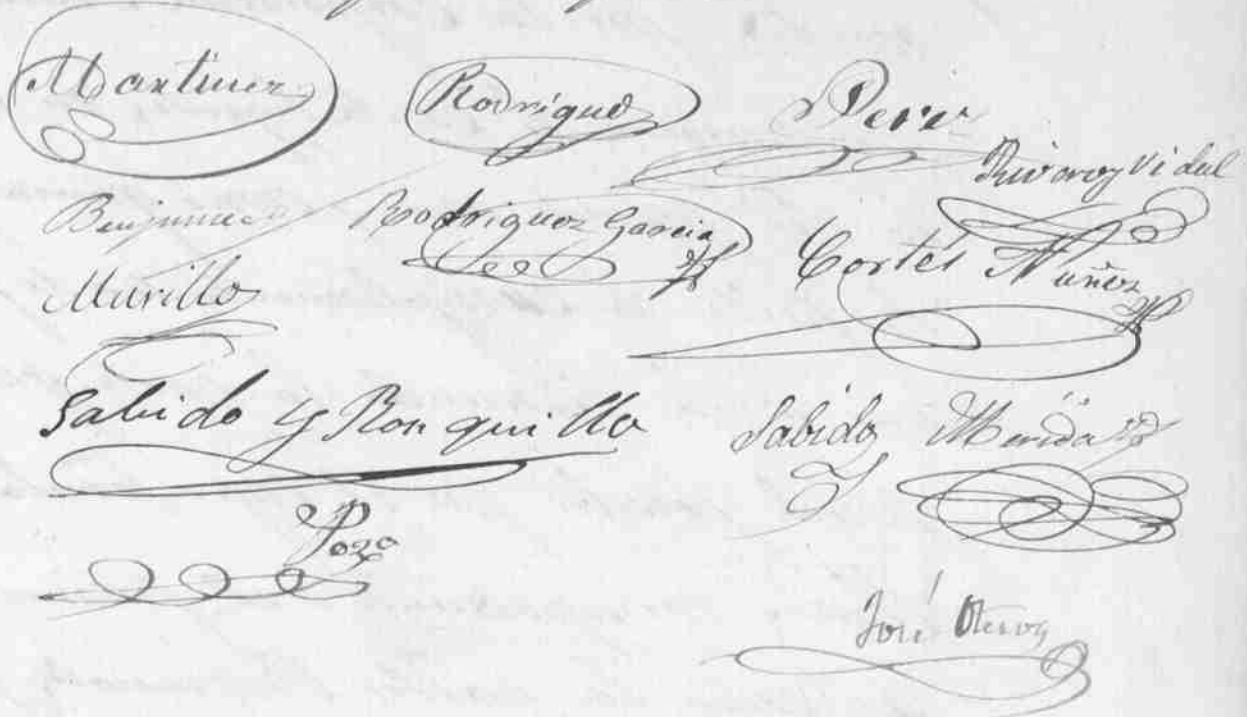 Martinez
Rodriguez
Perez
Rivero y Vidal
Benjumea
Rodriguez Garcia
Cortés Nuñez
Murillo
Sabido y Ronquillo
Sabido Merida
Pozo
José Otero